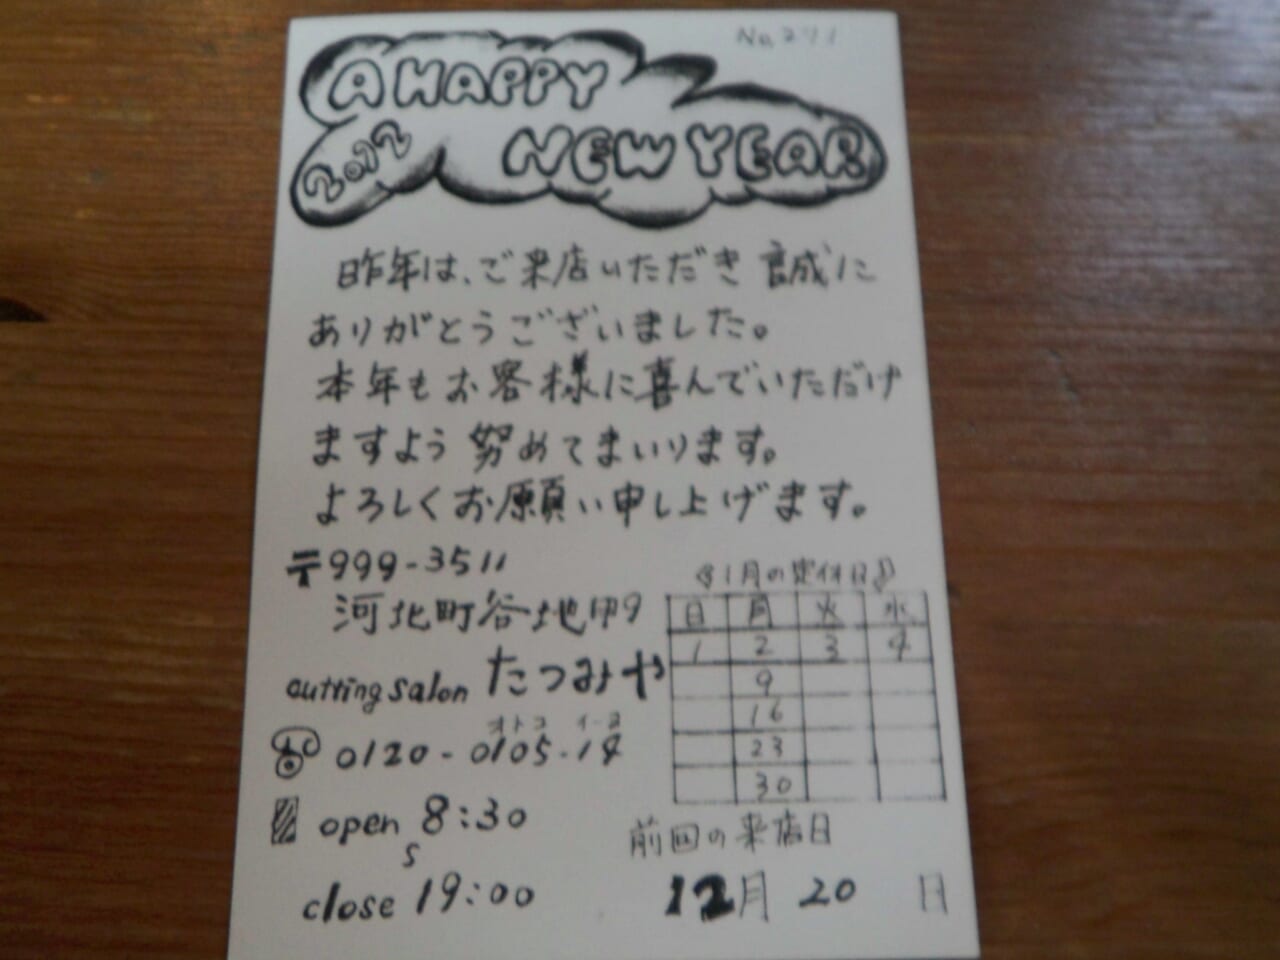 No.271
A HAPPY
2012 NEW YEAR
昨年は、ご来店いただき誠に
ありがとうございました。
本年もお客様に喜んでいただけ
ますよう努めてまいります。
よろしくお願い申し上げます。
〒999-3511
河北町谷地甲9
cutting salon たつみや
オトコ イーヨ
0120-0105-14
open 8:30
S
close 19:00
《1月の定休日》
日 月 火 水
1 2 3 4
9
16
23
30
前回の来店日
12月 20 日